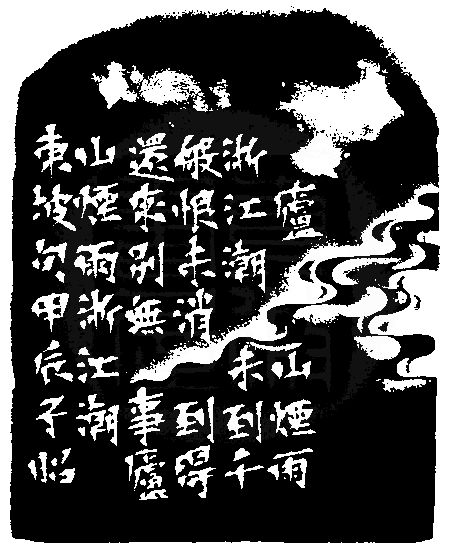 廬山煙雨
浙江潮未到千
般恨未消到得
還來別無事廬
山煙雨浙江潮
東坡句甲辰子昭